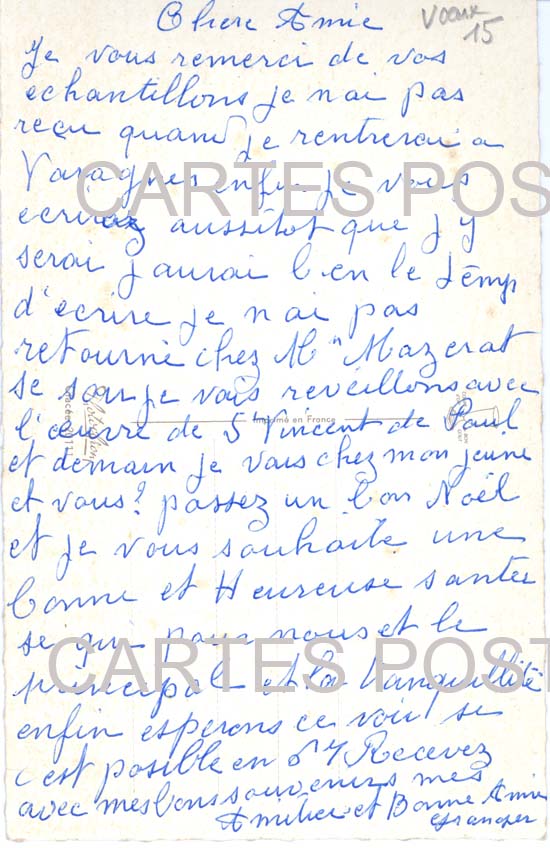 Chere Amie
Voeux
15
Je vous remerci de vos
echantillons je n ai pas
reçu quand je rentrerai a
enfin je vous
ecrirez aussitot que j y
serai j aurai bien le temp
d'ecrire je n ai pas
retourné chez Mme Mazerat
se soir je vais reveillons avec
l'œuvre de S Vincent de Paul
et demain je vais chez mon jeune
et vous? passez un bon Noël
et je vous souhaite une
bonne et Heureuse santer
se qui pour nous et le
principal et la tranquillité
enfin esperons ce voir se
c est posible en 67 Recevez
avec mes bons souvenirs mes
Amitier et Bonne Amie
CARTES POST
CARTES POST
Imprimé en France